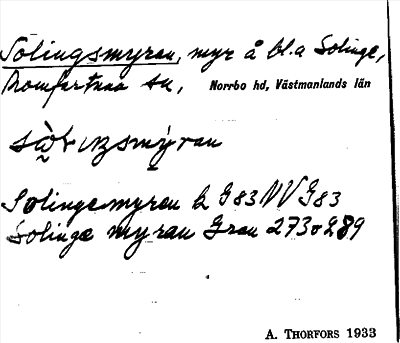 Solingsmyran, myr å bl.a Solinge,
Romfartuna sn, Norrbo hd, Västmanlands län
Solingemyren k G83 NV G83
Solinge myran Gran 273 o 289
A. THORFORS 1933